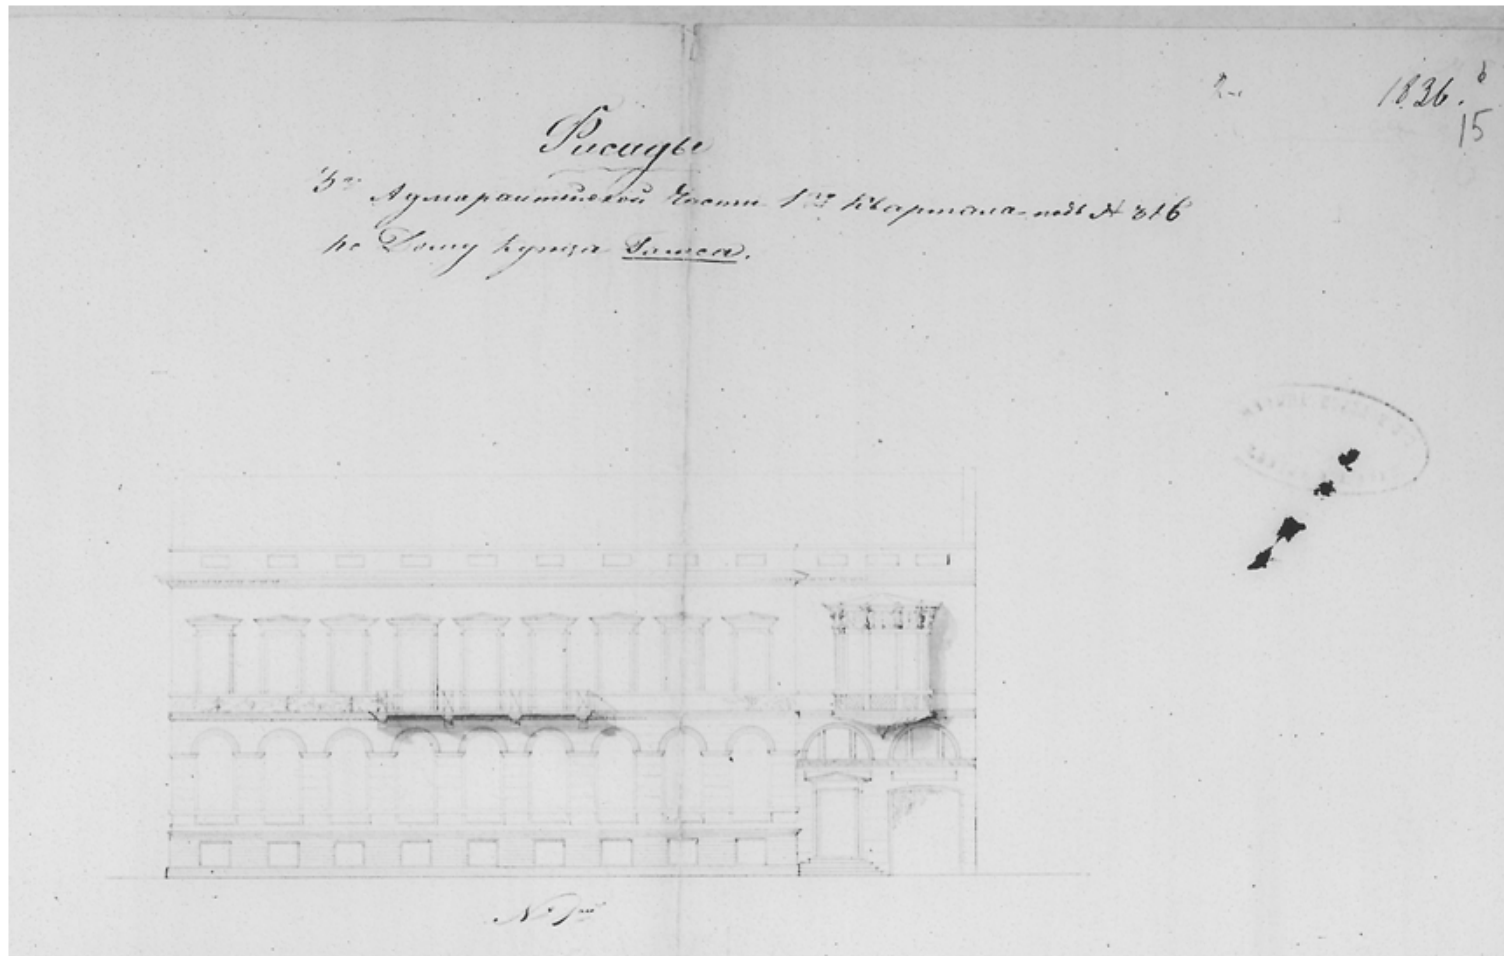 1836.
15
Фасады
3й Адмиралтейской Части 1го Квартала подъ № 316
по Дому купца
№ 1й